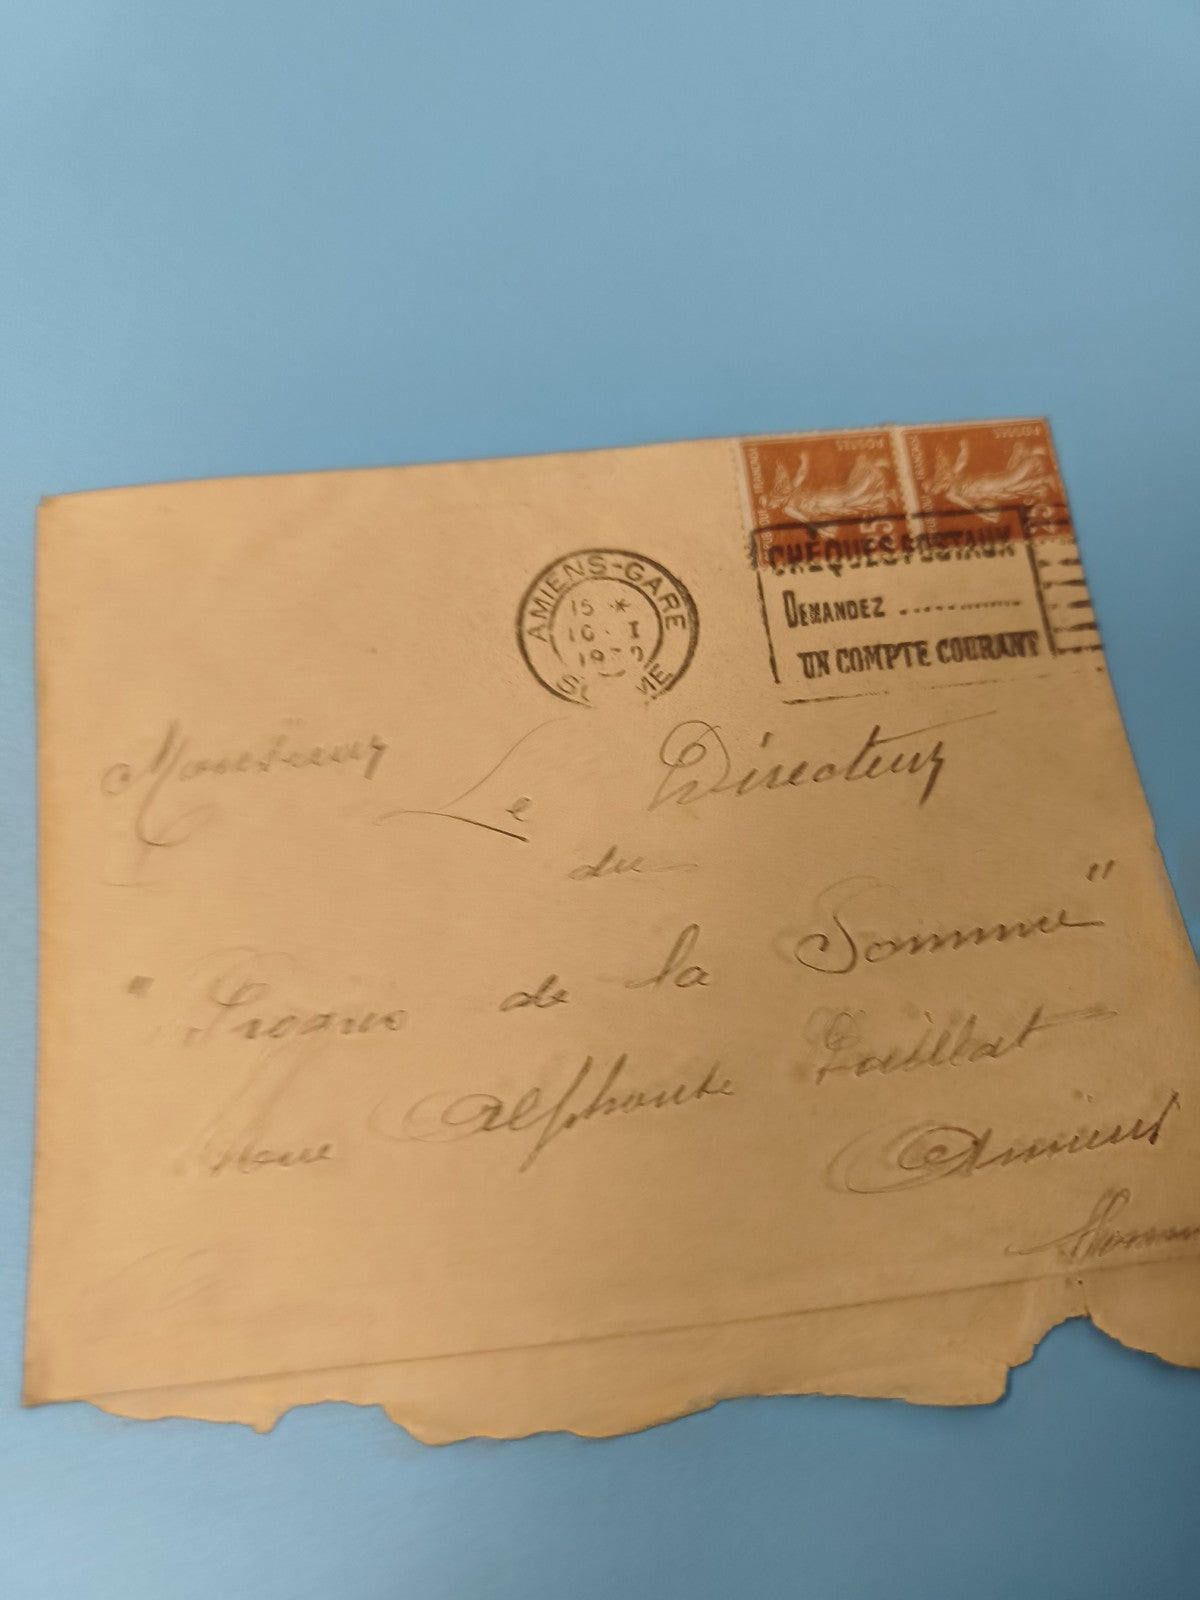 POSTES
POSTES
25c
AMIENS-GARE
15 *
CHÈQUES POSTAUX
DEMANDEZ ..............
UN COMPTE COURANT
Monsieur Le Directeur
du
" de la Somme"
Rue Alphonse Paillat
Amiens